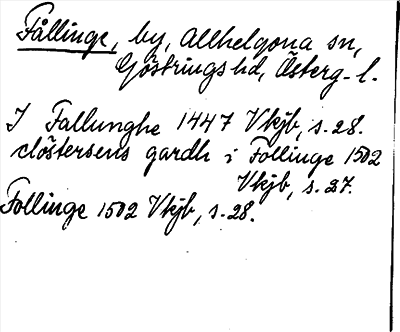 Fållinge, by, Allhelgona sn,
Göstrings hd, Österg. l.
I Fallunghe 1447 Vkjb, s. 28.
clöstersens gardh i Follinge 1502
Vkjb, s. 27.
Follinge 1502 Vkjb, s. 28.